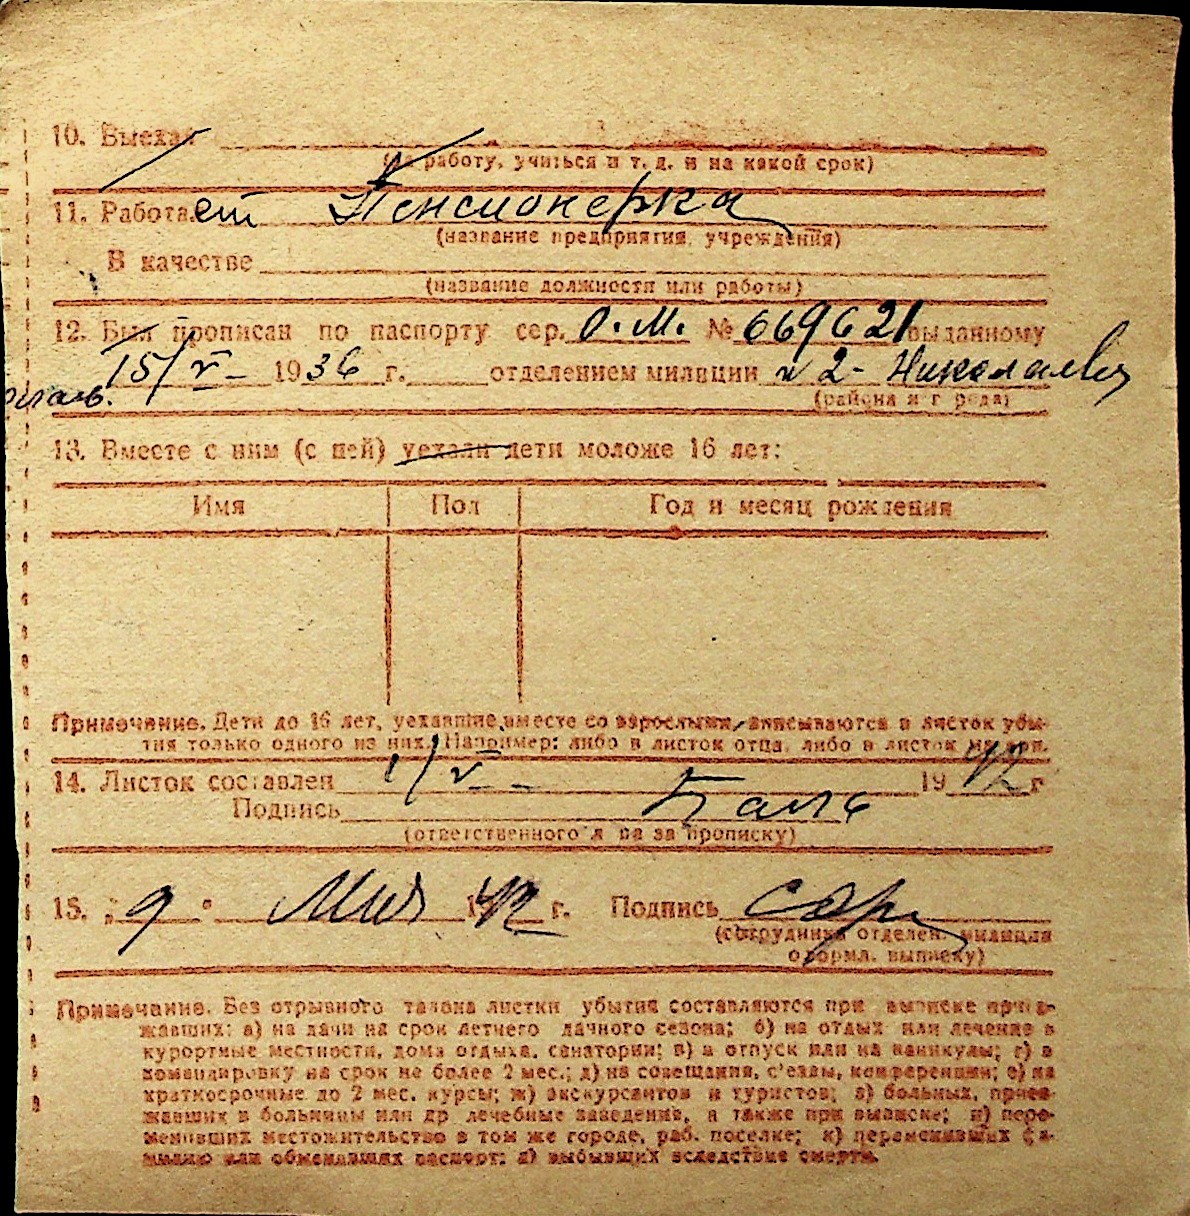 10. Выехал
(на работу, учиться и т. д. и на какой срок)
11. Работает Пенсионерка
(название предприятия, учреждения)
В качестве
(название должности или работы)
12. Был прописан по паспорту сер. О.М. № 669621 выданному
15/V- 1936 г. отделением милиции 2- Николаев
(района и города)
13. Вместе с ним (с ней) уехали дети моложе 16 лет:
Имя Пол Год и месяц рождения
Примечание. Дети до 16 лет, уехавшие вместе со взрослыми, вписываются в листок убы-
тия только одного из них. Например: либо в листок отца, либо в листок матери.
14. Листок составлен 1/V- 1942 г
Подпись
(ответственного лица за прописку)
15. „9" Мая 1942 г. Подпись
(сотрудника отделен. милиции
оформл. выписку)
Примечание. Без отрывного талона листки убытия составляются при выписке приез-
жавших: а) на дачи на срок летнего дачного сезона; б) на отдых или лечение в
курортные местности, дома отдыха, санатории; в) в отпуск или на каникулы; г) в
командировку на срок не более 2 мес.; д) на совещания, с'езды, конференции; е) на
краткосрочные до 2 мес. курсы; ж) экскурсантов и туристов; з) больных, приез-
жавших в больницы или др лечебные заведения, а также при выписке; и) пере-
менивших местожительство в том же городе, раб. поселке; к) переменивших фа-
милию или обменявших паспорт; л) выбывших вследствие смерти.